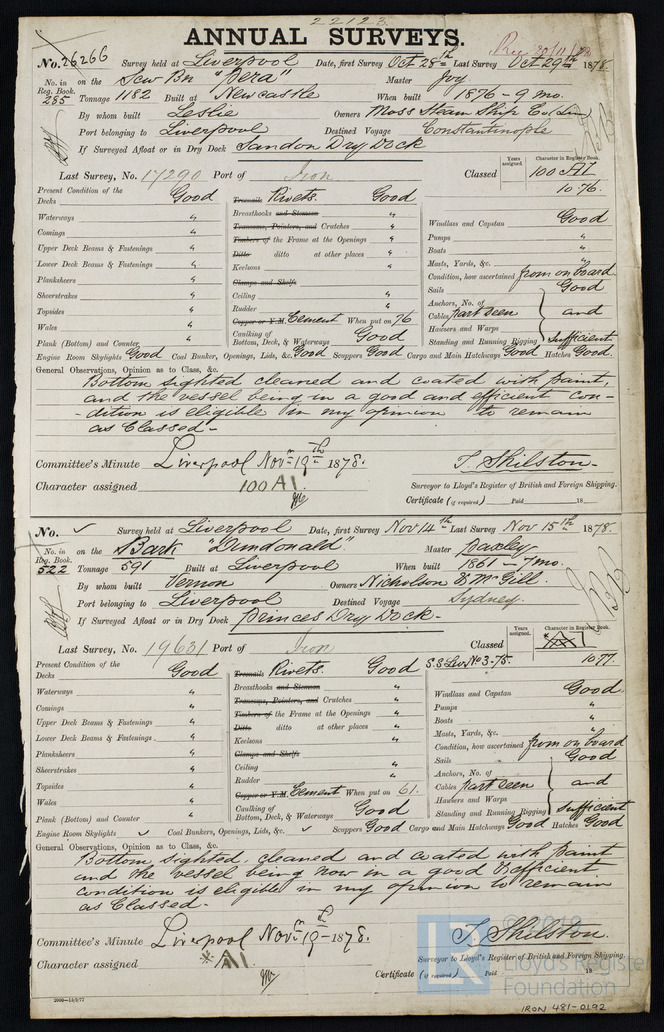 22123
ANNUAL SURVEYS.
No. 26266 Survey held at Liverpool Date, first Survey Oct 28th Last Survey Oct 29th 1878.
No. in Reg. Book. 285 on the Scw Bn "Pera" Master Joy
Tonnage 1182 Built at Newcastle When built 1876 - 9 mo.
By whom built Leslie Owners Moss Steam Ship Co (Lim
Port belonging to Liverpool Destined Voyage Constantinople
If Surveyed Afloat or in Dry Dock Sandon Dry Dock
Last Survey, No. 17290 Port of Iron Classed Years assigned. Character in Register Book. 100 A1
10 76.
Present Condition of the
Decks Good Treenails Rivets. Good
Waterways " Breasthooks and Stemson " Windlass and Capstan Good
Comings " Transoms, Pointers, and Crutches " Pumps "
Upper Deck Beams & Fastenings " Timbers of the Frame at the Openings " Boats "
Lower Deck Beams & Fastenings " Ditto ditto at other places " Masts, Yards, &c. "
Planksheers " Keelsons " Condition, how ascertained from on board
Sheerstrakes " Clamps and Shelfs Sails Good
Topsides " Ceiling " Anchors, No. of
Wales " Rudder " Cables part seen and
Plank (Bottom) and Counter " Copper or Y.M. Cement When put on 76 Hawsers and Warps
Caulking of Bottom, Deck, & Waterways Good Standing and Running Rigging Sufficient
Engine Room Skylights Good Coal Bunker, Openings, Lids, &c. Good Scuppers Good Cargo and Main Hatchways Good Hatches Good.
General Observations, Opinion as to Class, &c.
Bottom sighted cleaned and coated with paint,
and the vessel being in a good and efficient con-
-dition is eligible in my opinion to remain
as Classed.-
Committee's Minute Liverpool Novr 19th 1878. T. Shilston.
Character assigned 100 A1. Surveyor to Lloyd's Register of British and Foreign Shipping.
Certificate (if required) Paid 18
No. ✓ Survey held at Liverpool Date, first Survey Nov 14th Last Survey Nov 15th 1878.
No. in Reg. Book. 522 on the Bark "Dundonald". Master Paxley
Tonnage 591 Built at Liverpool When built 1861 - 7 mo.
By whom built Vernon Owners Nicholson & McGill.
Port belonging to Liverpool Destined Voyage Sydney.
If Surveyed Afloat or in Dry Dock Princes Dry Dock.-
Last Survey, No. 19631 Port of Iron Classed Years assigned. Character in Register Book.
Present Condition of the S.S. Liv. No 3-75. 10 77.
Decks Good Treenails Rivets. Good
Waterways " Breasthooks and Stemson " Windlass and Capstan Good
Comings " Transoms, Pointers, and Crutches " Pumps "
Upper Deck Beams & Fastenings " Timbers of the Frame at the Openings " Boats "
Lower Deck Beams & Fastenings " Ditto ditto at other places " Masts, Yards, &c. "
Planksheers " Keelsons " Condition, how ascertained from on board
Sheerstrakes " Clamps and Shelfs Sails Good
Topsides " Ceiling " Anchors, No. of
Wales " Rudder " Cables part seen and
Plank (Bottom) and Counter " Copper or Y.M. Cement When put on 61. Hawsers and Warps
Caulking of Bottom, Deck, & Waterways Good Standing and Running Rigging Sufficient
Engine Room Skylights ✓ Coal Bunker, Openings, Lids, &c. ✓ Scuppers Good Cargo and Main Hatchways Good Hatches Good
General Observations, Opinion as to Class, &c.
Bottom sighted, cleaned and coated with paint
and the vessel being now in a good & efficient
condition is eligible in my opinion to remain
as Classed.-
Committee's Minute Liverpool Novr 19th 1878. T. Shilston.
Character assigned A1. Surveyor to Lloyd's Register of British and Foreign Shipping.
Certificate (if required) Paid 18
© 2019
Lloyd's Register
Foundation
2000-13/2/77
IRON 481-0192